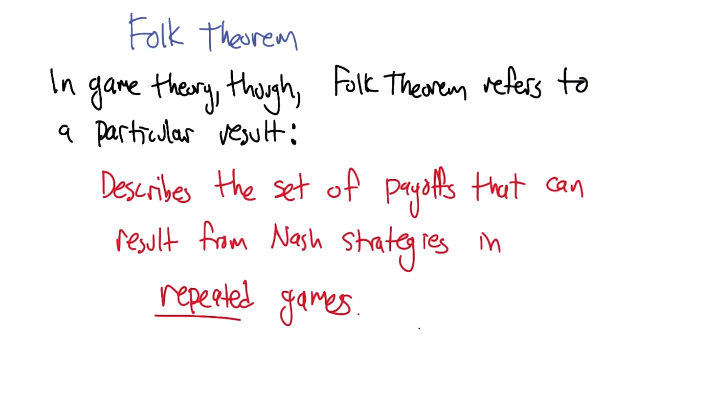 Folk Theorem
In game theory, though, Folk Theorem refers to
a particular result:
Describes the set of payoffs that can
result from Nash strategies in
repeated games.